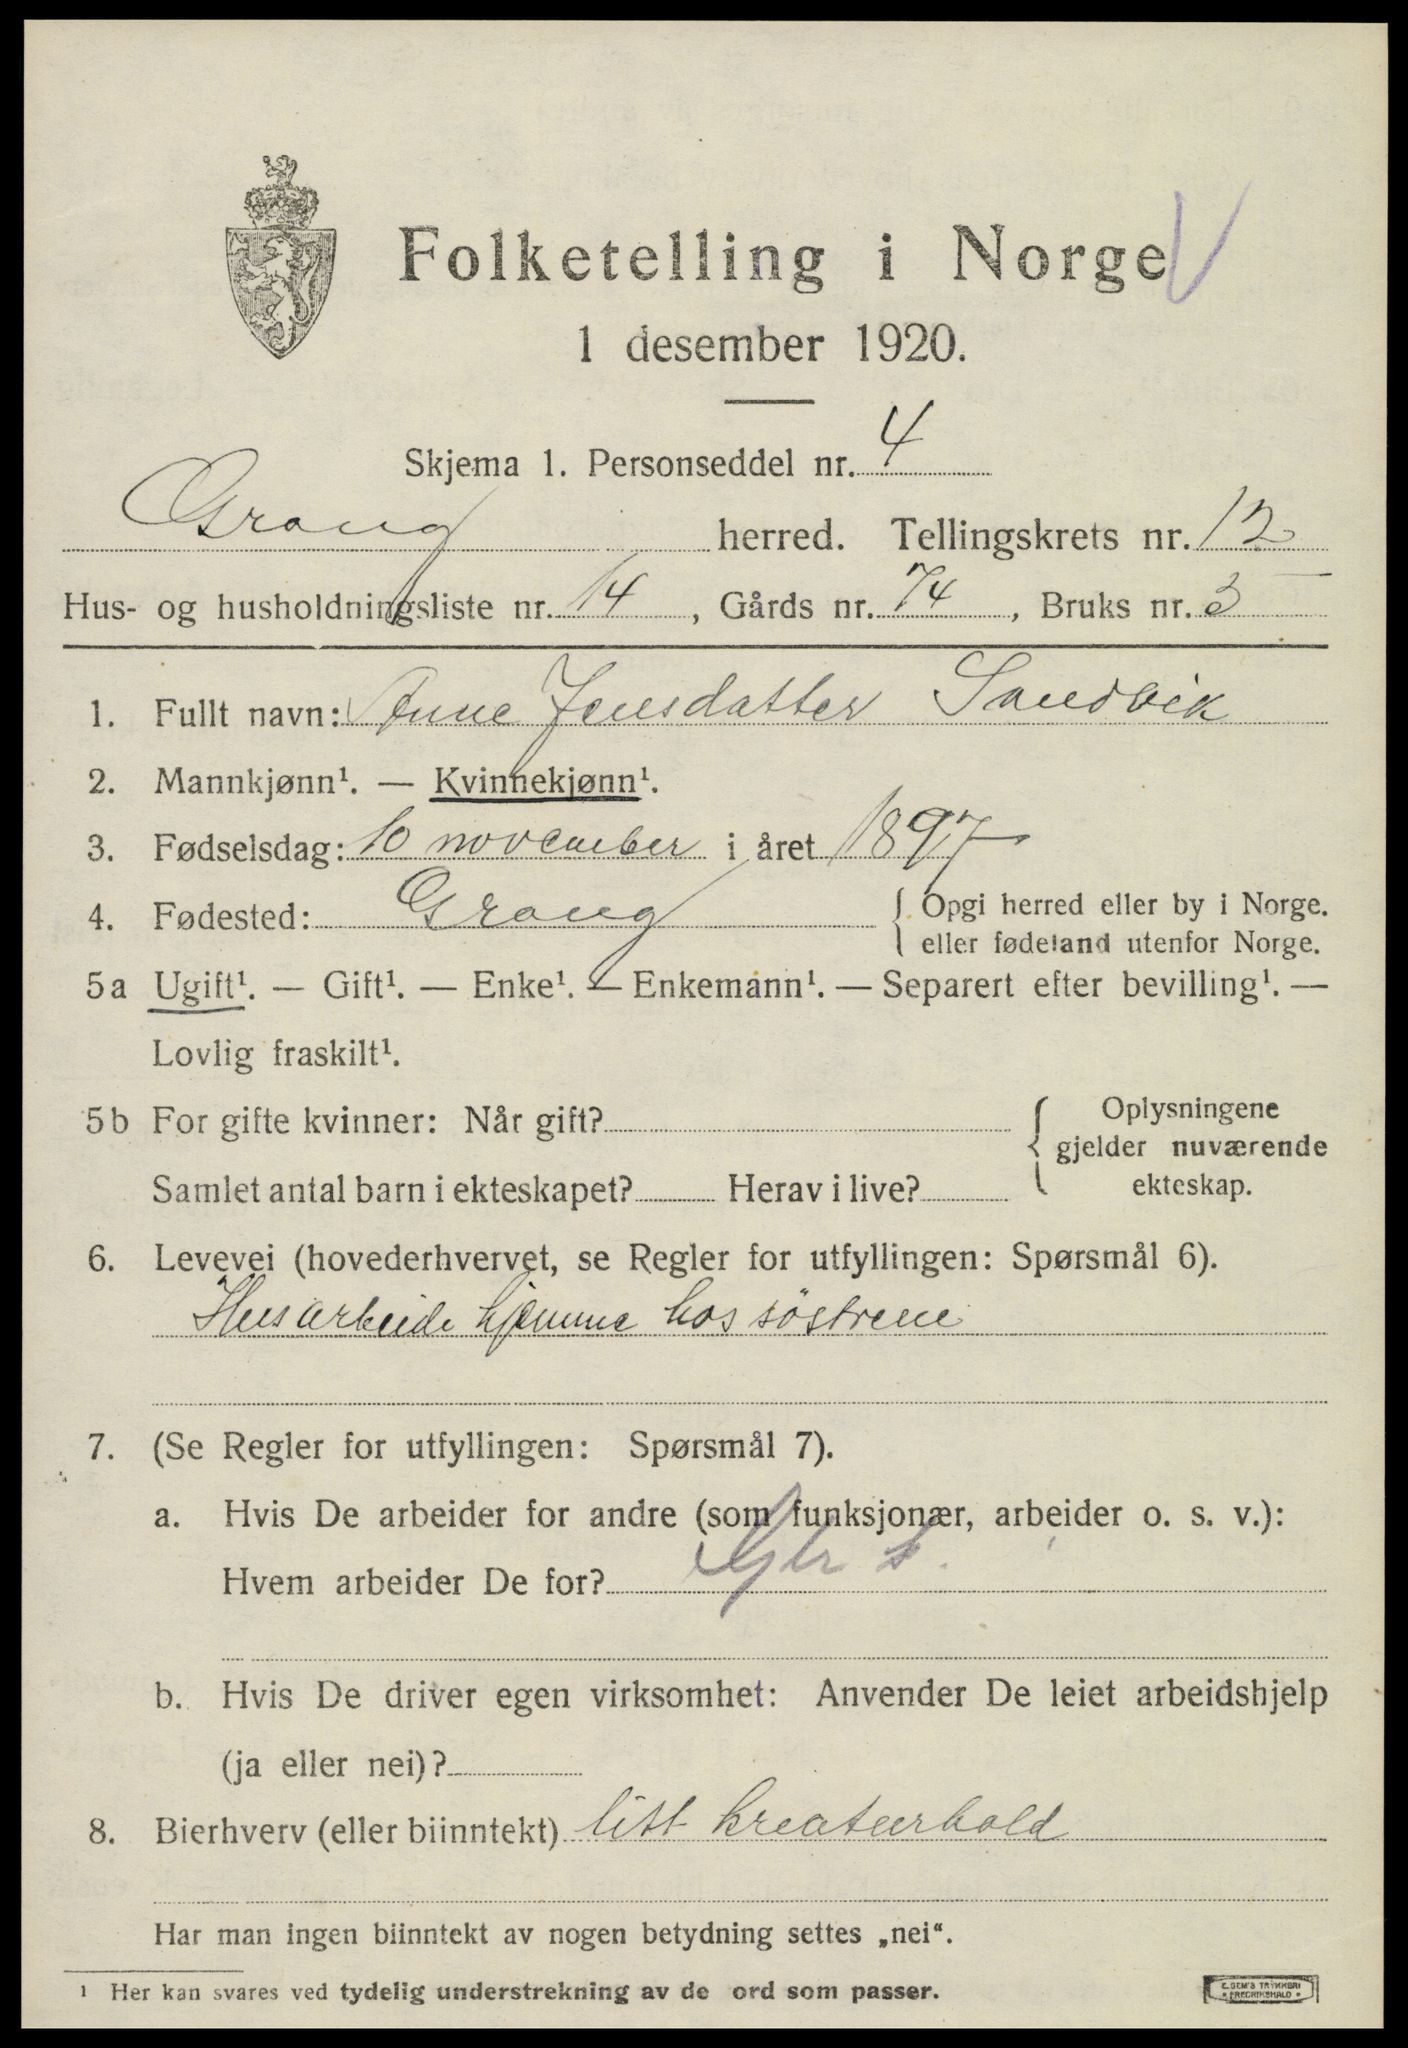 Folketelling i Norge V
1 desember 1920.
Skjema 1. Personseddel nr. 4
Grong herred. Tellingskrets nr. 12
Hus- og husholdningsliste nr. 14, Gårds nr. 74, Bruks nr. 3
1. Fullt navn: Anne Jensdatter Sandvik
2. Mannkjønn¹. — Kvinnekjønn¹.
3. Fødselsdag: 10 november i året 1897
4. Fødested: Grong { Opgi herred eller by i Norge.
eller fødeland utenfor Norge.
5a Ugift¹. — Gift¹. — Enke¹. — Enkemann¹. — Separert efter bevilling¹. —
Lovlig fraskilt¹.
5b For gifte kvinner: Når gift? { Oplysningene
gjelder nuværende
Samlet antal barn i ekteskapet? Herav i live? ekteskap.
6. Levevei (hovederhvervet, se Regler for utfyllingen: Spørsmål 6).
Husarbeide hjemme hos søstrene
7. (Se Regler for utfyllingen: Spørsmål 7).
a. Hvis De arbeider for andre (som funksjonær, arbeider o. s. v.):
Hvem arbeider De for?
b. Hvis De driver egen virksomhet: Anvender De leiet arbeidshjelp
(ja eller nei)?
8. Bierhverv (eller biinntekt) litt kreaturhold
Har man ingen biinntekt av nogen betydning settes „nei“.
¹ Her kan svares ved tydelig understrekning av de ord som passer.
E. SEM'S TRYKKERI
FREDRIKSHALD